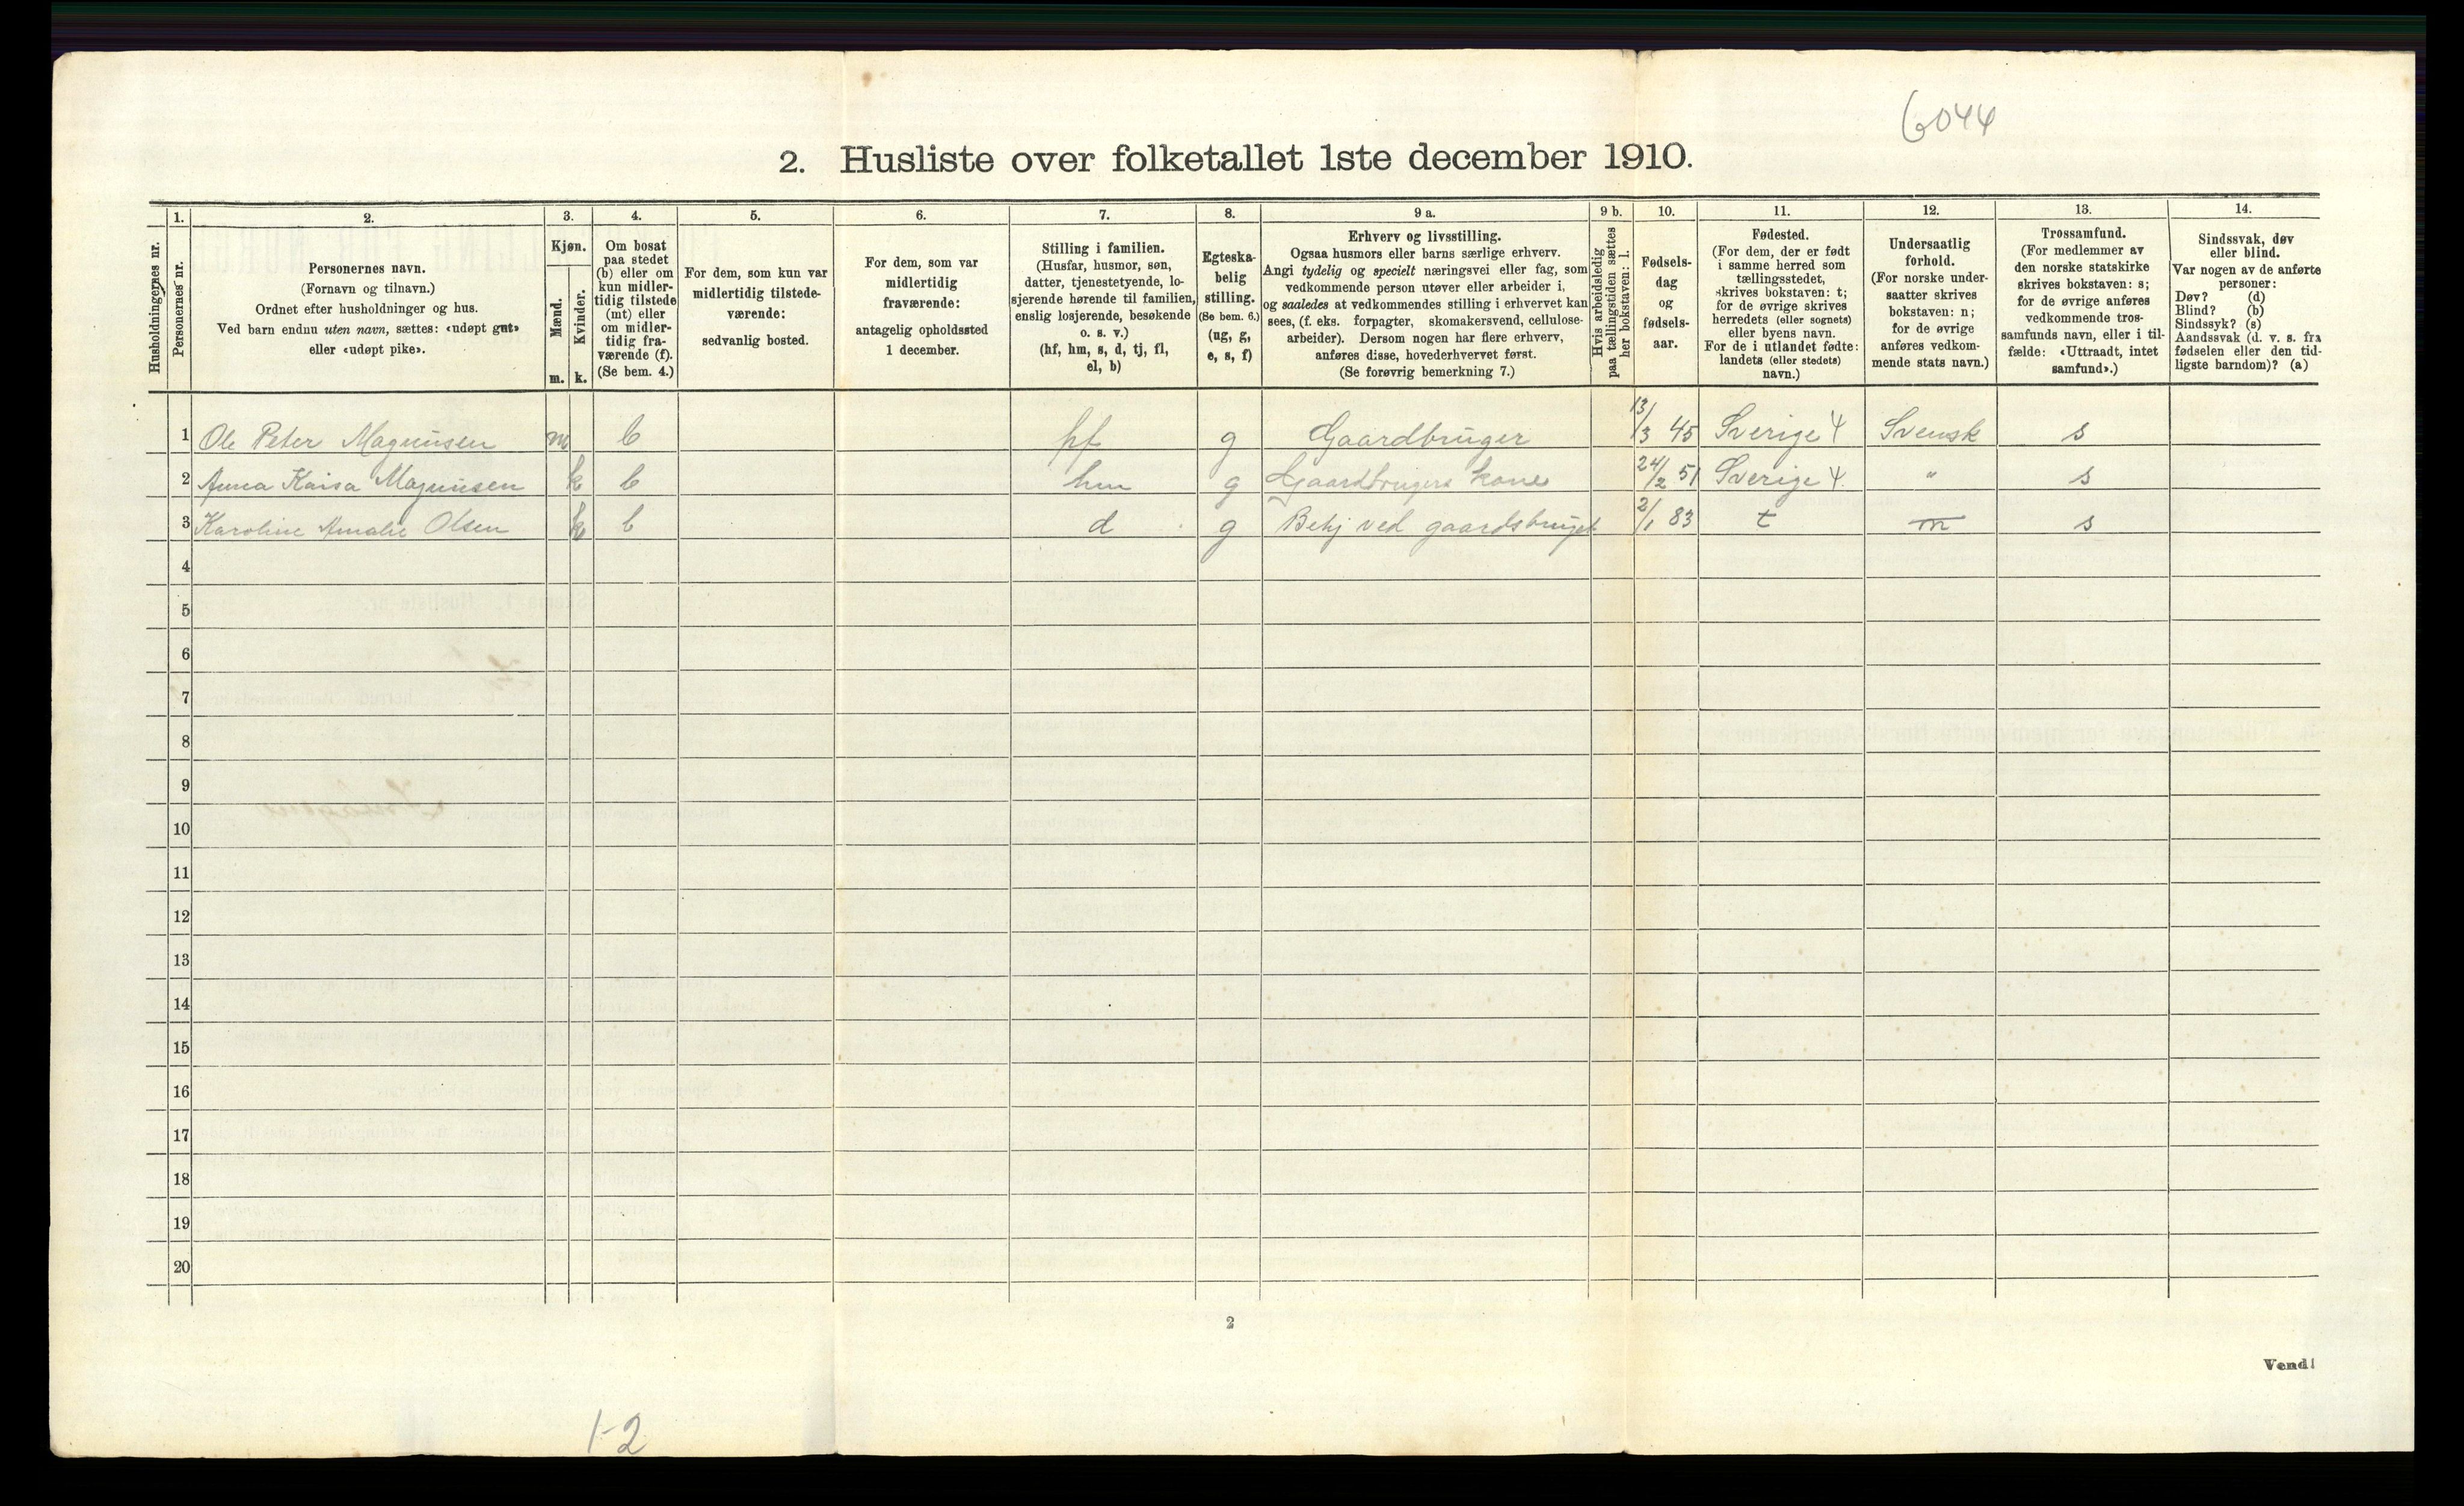 6044
2. Husliste over folketallet 1ste december 1910.
Husholdningernes nr.
1.
Personernes nr.
2.
Personernes navn.
(Fornavn og tilnavn.)
Ordnet efter husholdninger og hus.
Ved barn endnu uten navn, sættes: «udøpt gut»
eller «udøpt pike».
3.
Kjøn.
Mænd.
Kvinder.
m. k.
4.
Om bosat
paa stedet
(b) eller om
kun midler-
tidig tilstede
(mt) eller
om midler-
tidig fra-
værende (f).
(Se bem. 4.)
5.
For dem, som kun var
midlertidig tilstede-
værende:
sedvanlig bosted.
6.
For dem, som var
midlertidig
fraværende:
antagelig opholdssted
1 december.
7.
Stilling i familien.
(Husfar, husmor, søn,
datter, tjenestetyende, lo-
sjerende hørende til familien,
enslig losjerende, besøkende
o. s. v.)
(hf, hm, s, d, tj, fl,
el, b)
8.
Egteska-
belig
stilling.
(Se bem. 6.)
(ug, g,
e, s, f)
9 a.
Erhverv og livsstilling.
Ogsaa husmors eller barns særlige erhverv.
Angi tydelig og specielt næringsvei eller fag, som
vedkommende person utøver eller arbeider i,
og saaledes at vedkommendes stilling i erhvervet kan
sees, (f. eks. forpagter, skomakersvend, cellulose-
arbeider). Dersom nogen har flere erhverv,
anføres disse, hovederhvervet først.
(Se forøvrig bemerkning 7.)
9 b.
Hvis arbeidsledig
paa tællingstiden sættes
her bokstaven: l.
10.
Fødsels-
dag
og
fødsels-
aar.
11.
Fødested.
(For dem, der er født
i samme herred som
tællingsstedet,
skrives bokstaven: t;
for de øvrige skrives
herredets (eller sognets)
eller byens navn.
For de i utlandet fødte:
landets (eller stedets)
navn.)
12.
Undersaatlig
forhold.
(For norske under-
saatter skrives
bokstaven: n;
for de øvrige
anføres vedkom-
mende stats navn.)
13.
Trossamfund.
(For medlemmer av
den norske statskirke
skrives bokstaven: s;
for de øvrige anføres
vedkommende tros-
samfunds navn, eller i til-
fælde: «Uttraadt, intet
samfund».)
14.
Sindssvak, døv
eller blind.
Var nogen av de anførte
personer:
Døv? (d)
Blind? (b)
Sindssyk? (s)
Aandssvak (d. v. s. fra
fødselen eller den tid-
ligste barndom)? (a)
1 Ole Peter Magnusen m b hf g Gaardbruger 13/3 45 Sverige 4 Svensk s
2 Anna Kaisa Magnusen k b hm g Gaardbrugers kone 24/2 51 Sverige 4 " s
3 Karoline Amalie Olsen k b d g Behj ved gaardsbruget 2/1 83 t n s
4
5
6
7
8
9
10
11
12
13
14
15
16
17
18
19
20
2
Vend!
1-2